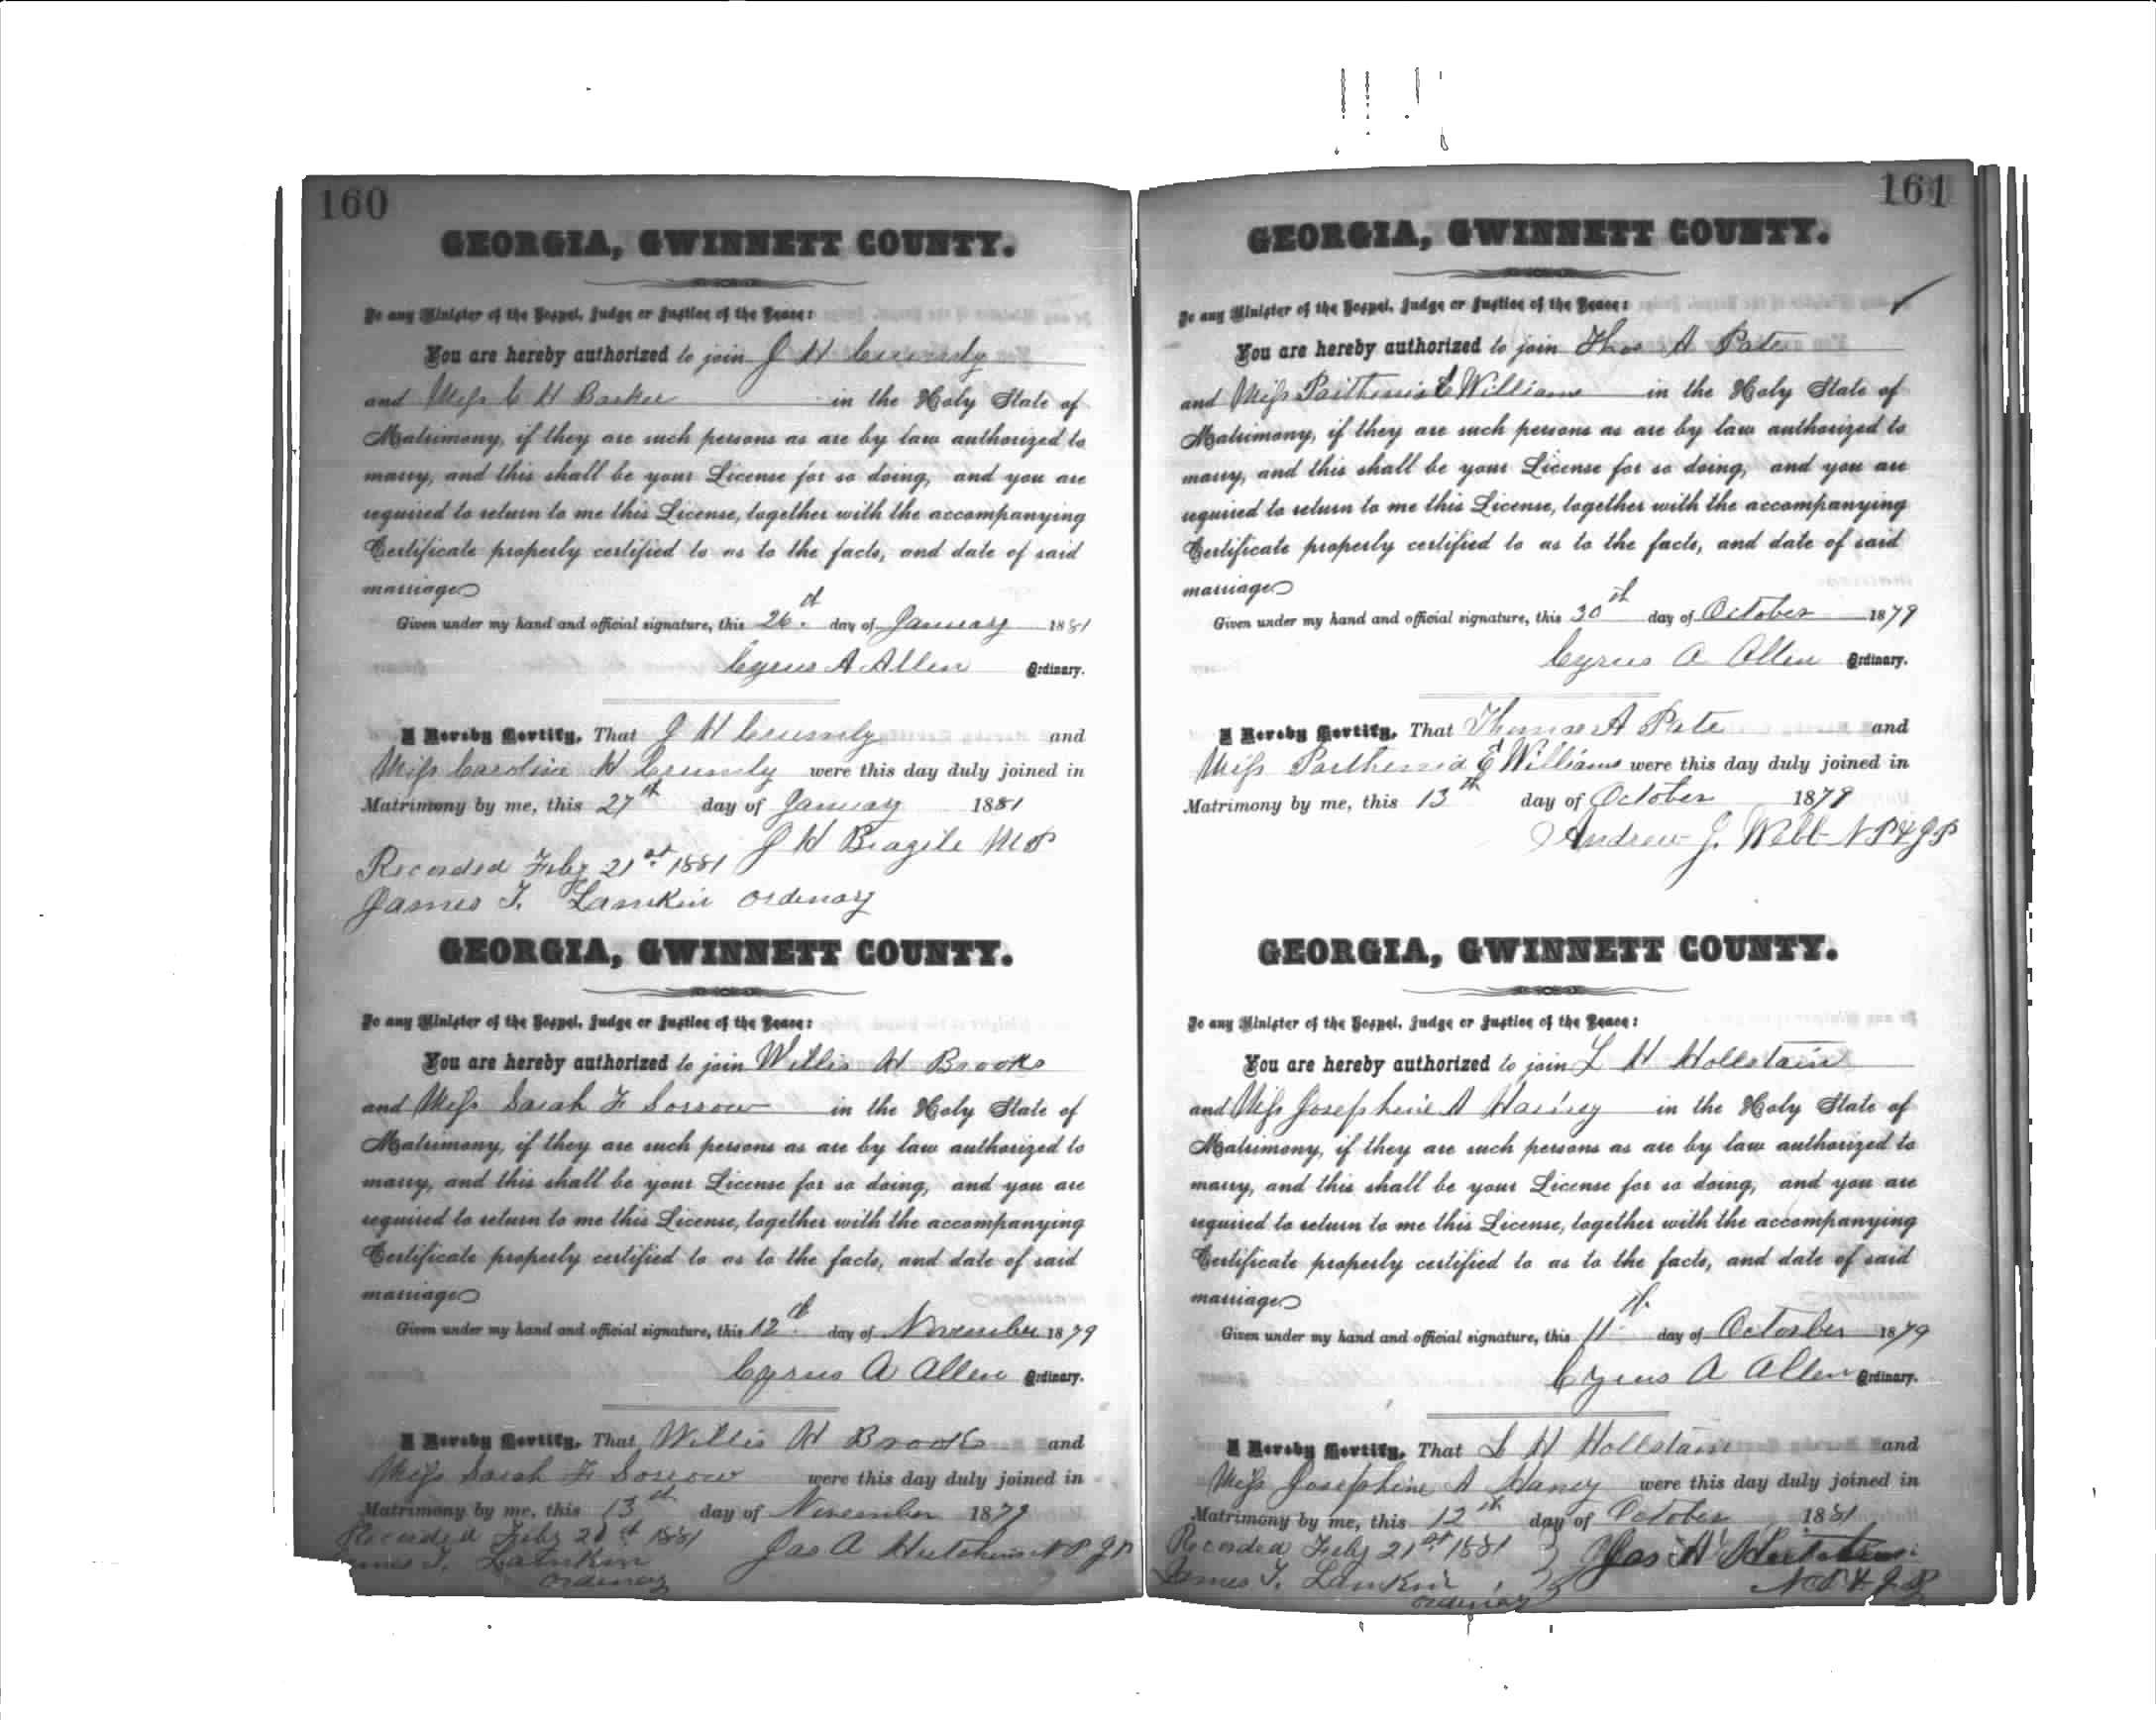 160
GEORGIA, GWINNETT COUNTY.
To any Minister of the Gospel, Judge or Justice of the Peace:
You are hereby authorized to join J H Crumly
and Miss C H Barker in the Holy State of
Matrimony, if they are such persons as are by law authorized to
marry, and this shall be your License for so doing, and you are
required to return to me this License, together with the accompanying
Certificate properly certified to as to the facts, and date of said
marriage
Given under my hand and official signature, this 26th day of January 1881
Cyrus A Allen Ordinary.
I Hereby Certify, That J H Crumly and
Miss Caroline H Crumly were this day duly joined in
Matrimony by me, this 27th day of January 1881
J H
Recorded Feby 21st 1881
James T. Lamkin ordinary
GEORGIA, GWINNETT COUNTY.
To any Minister of the Gospel, Judge or Justice of the Peace:
You are hereby authorized to join Willis H Brooks
and Miss Sarah F Sorrow in the Holy State of
Matrimony, if they are such persons as are by law authorized to
marry, and this shall be your License for so doing, and you are
required to return to me this License, together with the accompanying
Certificate properly certified to as to the facts, and date of said
marriage
Given under my hand and official signature, this 12th day of November 1879
Cyrus A Allen Ordinary.
I Hereby Certify, That Willis H Brooks and
Miss Sarah F Sorrow were this day duly joined in
Matrimony by me, this 13th day of November 1879
Recorded Feby 21st 1881 Jas A Hutchins N P J P
James T. Lamkin
ordinary
161
GEORGIA, GWINNETT COUNTY.
To any Minister of the Gospel, Judge or Justice of the Peace:
You are hereby authorized to join Thos A Pate
and Miss Parthenia E Williams in the Holy State of
Matrimony, if they are such persons as are by law authorized to
marry, and this shall be your License for so doing, and you are
required to return to me this License, together with the accompanying
Certificate properly certified to as to the facts, and date of said
marriage
Given under my hand and official signature, this 30th day of October 1879
Cyrus A Allen Ordinary.
I Hereby Certify, That Thomas A Pate and
Miss Parthenia E Williams were this day duly joined in
Matrimony by me, this 13th day of October 1879
Andrew J. Webb N P & J P
GEORGIA, GWINNETT COUNTY.
To any Minister of the Gospel, Judge or Justice of the Peace:
You are hereby authorized to join L H Hollstain
and Miss Josephine A Haney in the Holy State of
Matrimony, if they are such persons as are by law authorized to
marry, and this shall be your License for so doing, and you are
required to return to me this License, together with the accompanying
Certificate properly certified to as to the facts, and date of said
marriage
Given under my hand and official signature, this 11th day of October 1879
Cyrus A Allen Ordinary.
I Hereby Certify, That L H Hollstain and
Miss Josephine A Haney were this day duly joined in
Matrimony by me, this 12th day of October 1881
Recorded Feby 21st 1881 Jas A Hutchins
James T. Lamkin N P & J P
ordinary